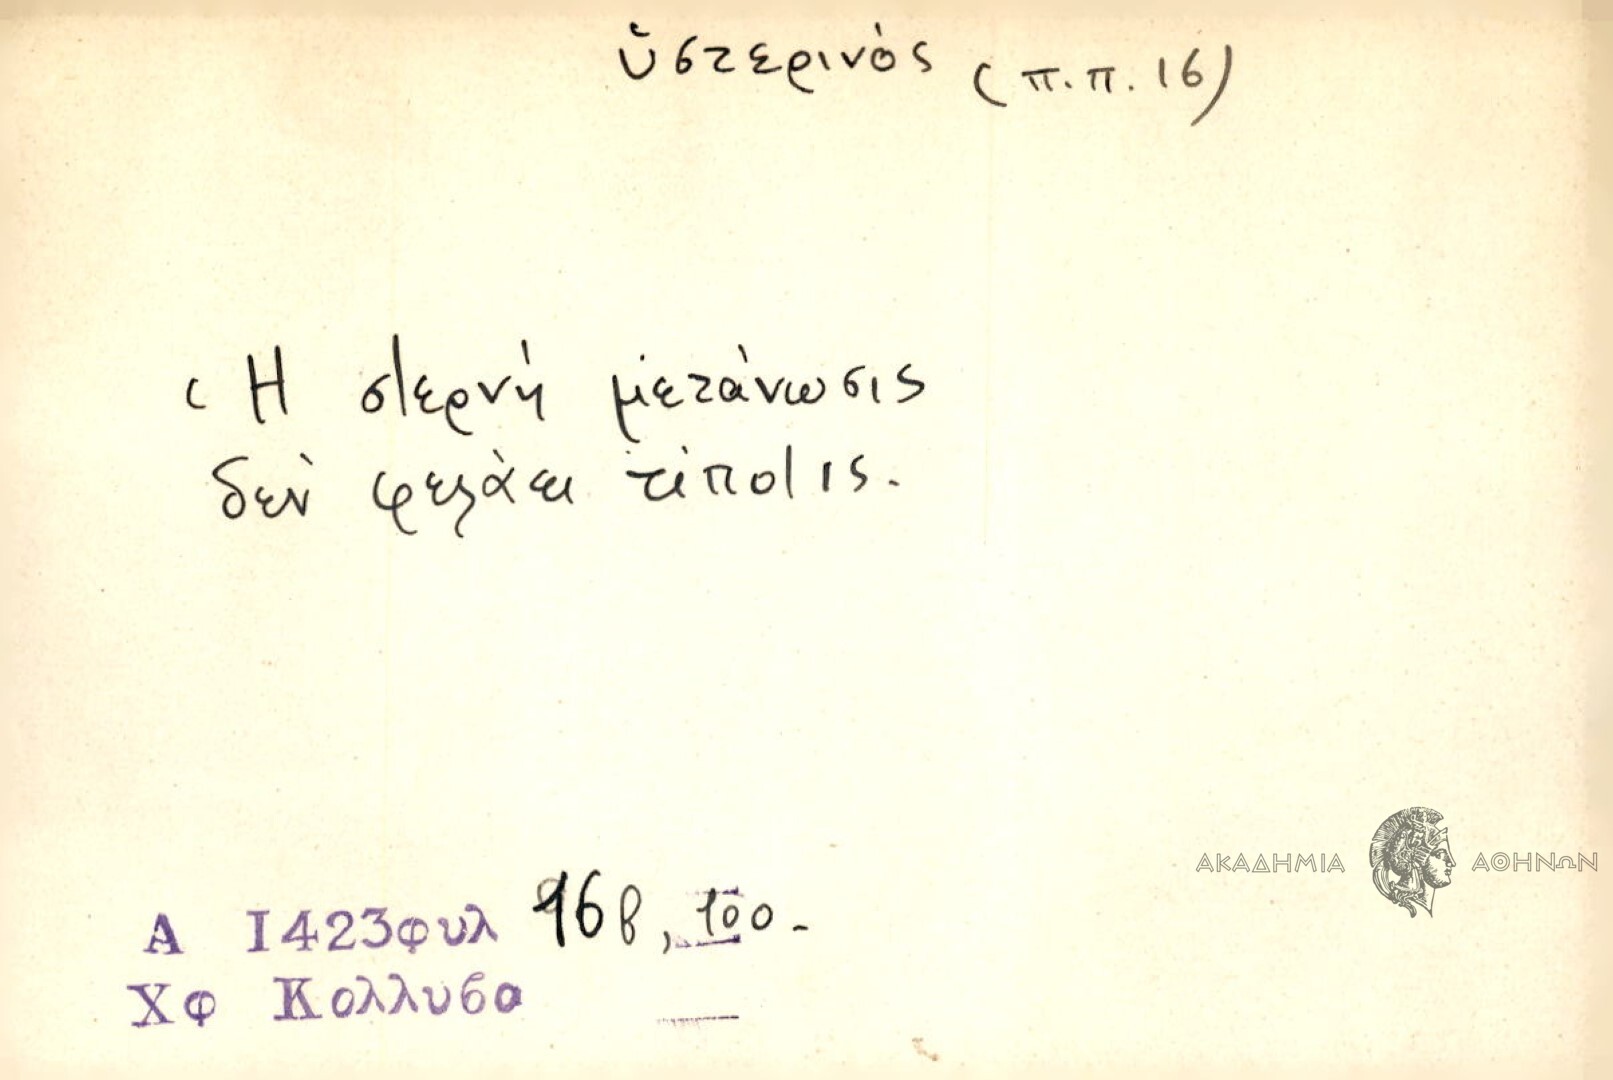 ὑστερινός (π.π. 16)
Ἡ στερνὴ μετάνωσις
δὲν φελάει τίποτις.
ΑΚΑΔΗΜΙΑ ΑΘΗΝΩΝ
Α 1423φυλ 16β, 100.-
Χφ Κολλυβα